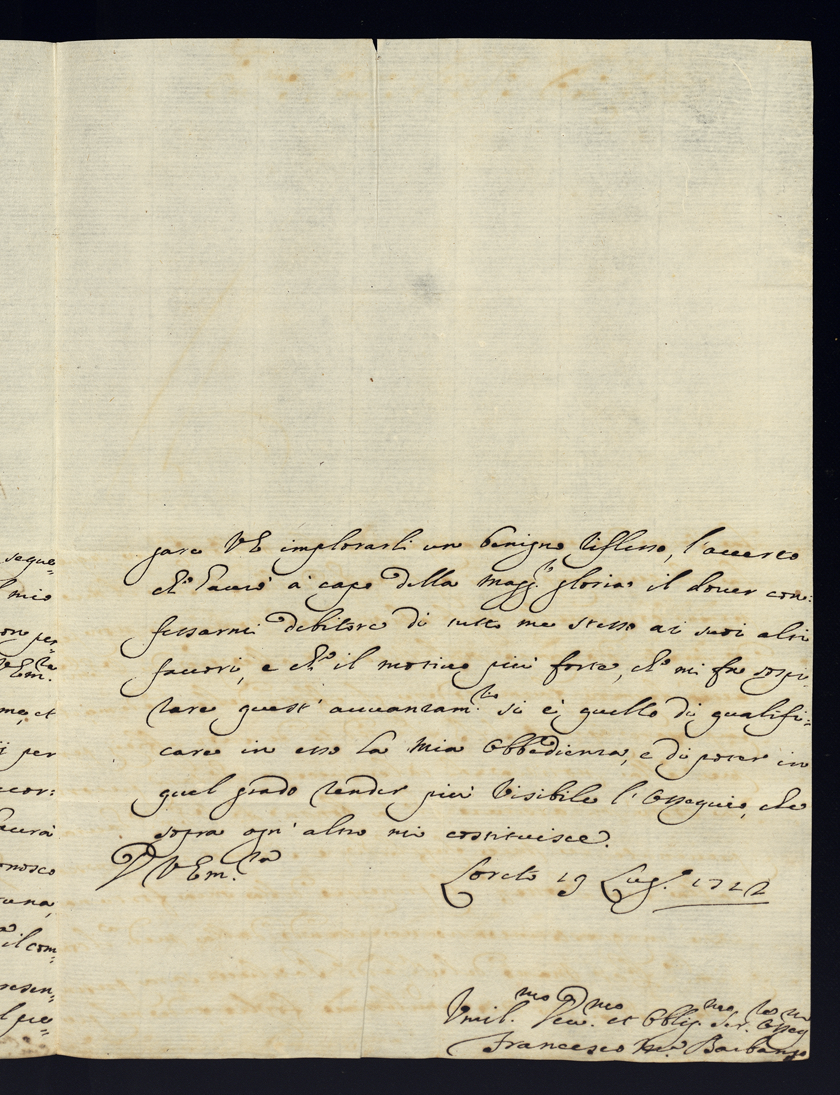 seque=
l mio
on per
VEm.za
me, et
ij per
cor:
avera
onosco
una,
il com=
resen=
l pre=
gare VE implorarli un benigno riflesso, l'accerto
che l'avrò à capo della magg.r gloria il dover con=
fessarmi debitore di tutto me stesso ai suoi alti
favori, e che il motivo più forte, che mi fa sospi=
rare quest' avvanzam.to si è quello di qualifi=
care in esso la mia obbedienza, e di poter in
quel grado render più visibile l'ossequio, che
sopra ogni altro mi costituisce.
D VEm.za
Loreto 19 Lug.o 1722
Umil.mo Dev.mo et Oblig.mo Ser.
Francesco Barbanzo